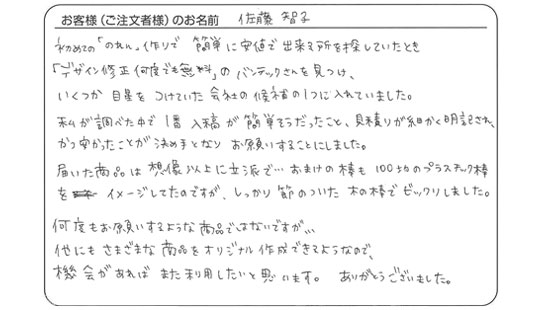 お客様(ご注文者様)のお名前 佐藤 智子
初めての「のれん」作りで 簡単に安値で出来る所を探していたとき
「デザイン修正何度でも無料」の バンテックさんを見つけ、
いくつか 目星を つけていた 会社の 候補の1つに入れていました。
私が調べた中で 1番 入稿が 簡単そうだったこと、見積りが細かく明記され、
かつ安かったことが 決め手となり お願いすることにしました。
届いた商品は 想像以上に立派で… おまけの棒も 100均のプラスチック棒
を イメージしてたのですが、しっかり 節のついた 木の棒で ビックリしました。
何度もお願いするような商品ではないですが…
他にも さまざまな 商品を オリジナル 作成できるようなので、
機会があれば また利用したいと思います。 ありがとうございました。